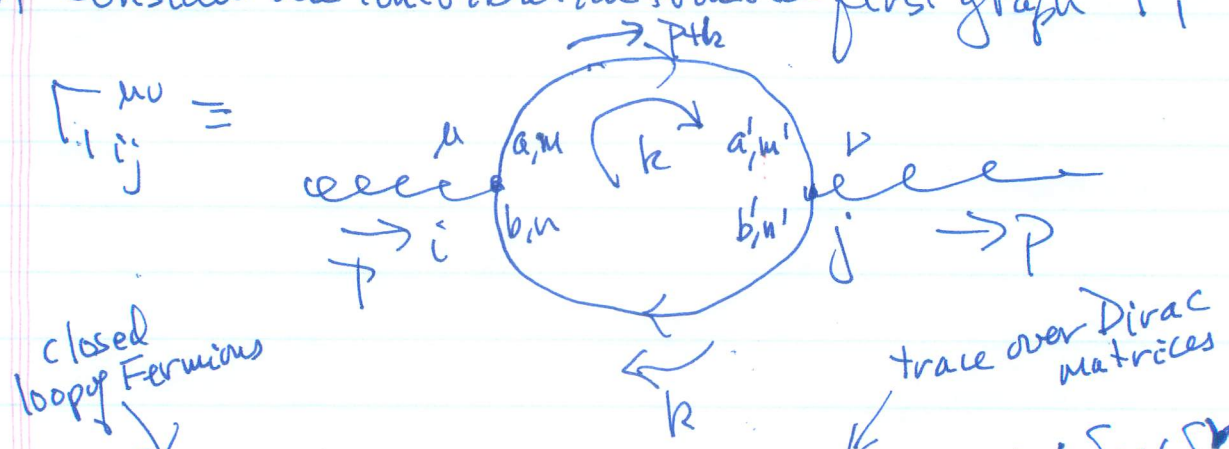 first graph
p+k
Γ₁ᵢⱼ^μν ≡
μ a,m k a',m' ν
b,n b',n'
p i j p
closed
loop of Fermions
trace over Dirac
matrices
k